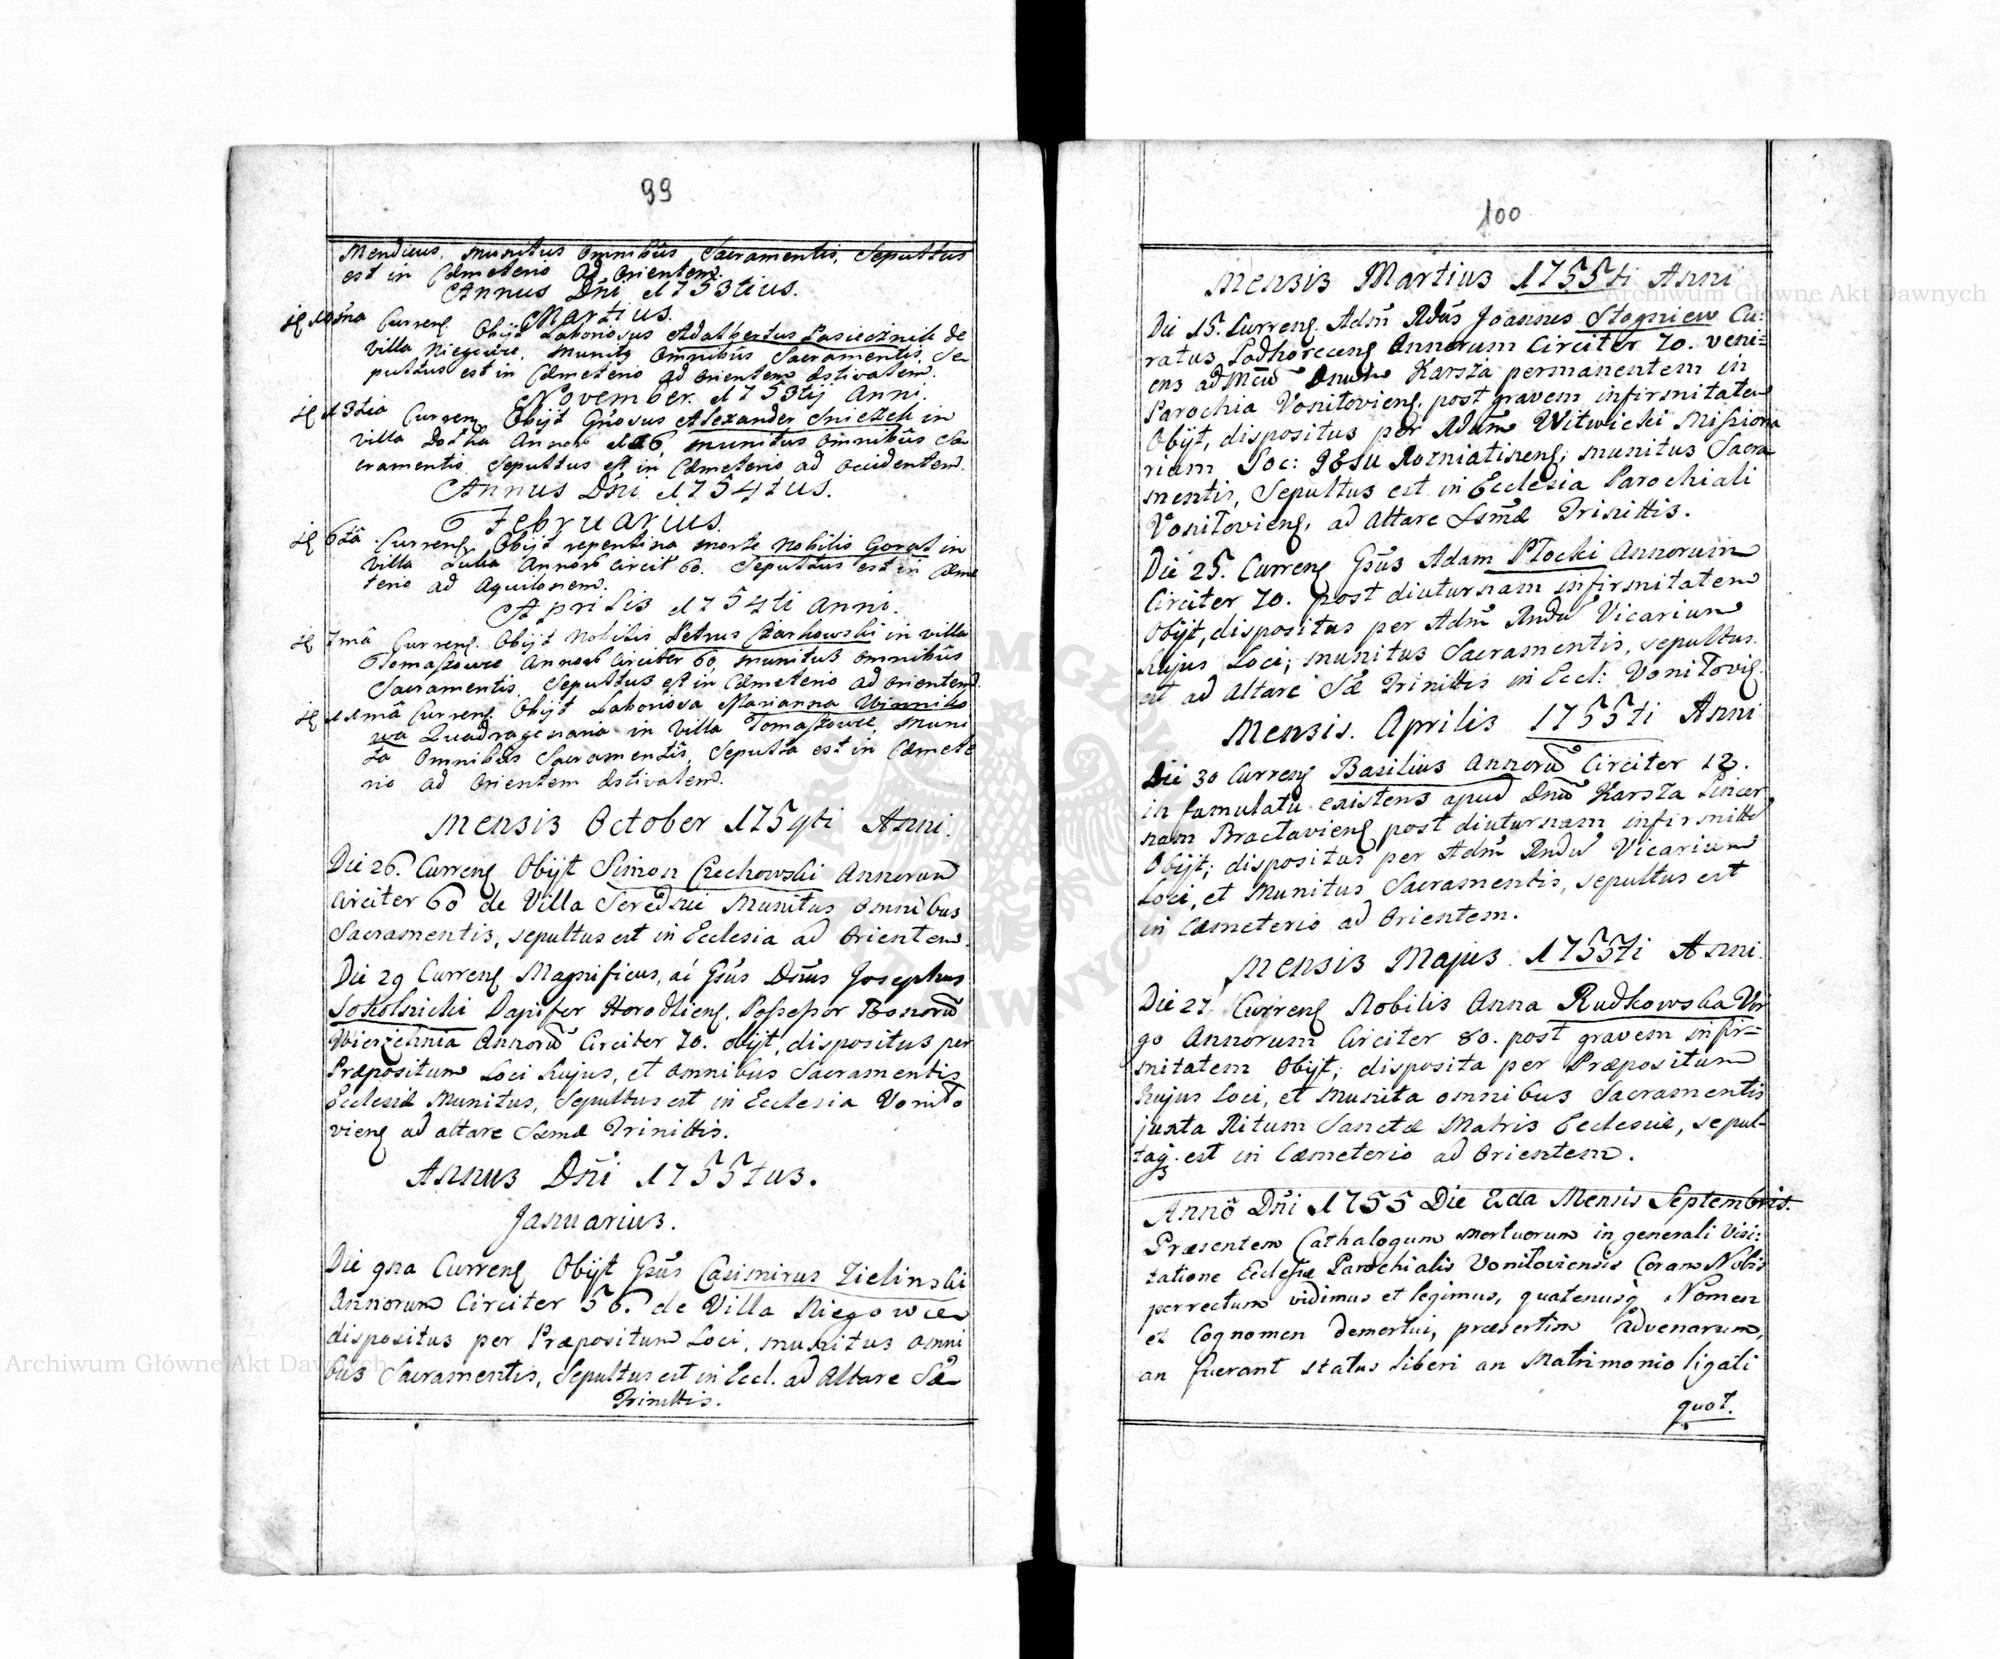 99
Mendicus, munitus omnibus Sacramentis, Sepultus
est in Cæmeterio ad orientem.
Annus Dñi 1753tius.
Martius.
10ma Curreng. Obijt Laboriosus Adalbertus Pasiecznik de
villa Niegowce, munitg omnibus Sacramentis, Se-
pultus est in Cæmeterio ad orientem æstivalem.
November. 1753tij Anni.
13tia Curreng Obijt Gñosus Alexander Snieżek in
villa Annor̃ 16 munitus omnibus Sa-
cramentis, Sepultus est in Cæmeterio ad occidentem.
Annus Dñi 1754tus.
Februarius.
6tâ Curreng Obijt repentina morte Nobilis Gorat in
villa Annor̃ circit 60. Sepultus est in Cæme
terio ad Aquilonem.
Aprilis 1754ti anni.
7mâ Curreng. Obijt Nobilis Petrus Czarkowski in villa
Tomaszowce Annor̃ circiter 60 munitus omnibus
Sacramentis, Sepultus est in Cæmeterio ad orientem
11mâ Curreng. Obijt Laboriosa Marianna Winniko
wa Quadragenaria in villa Tomaszowce, muni
ta omnibus Sacramentis, Sepulta est in Cæmete
rio ad orientem æstivalem.
Mensis October 1754ti Anni.
Die 26. Curreng Obijt Simon Czechowski Annorum
circiter 60 de Villa Serednie Munitus omnibus
Sacramentis, sepultus est in Ecclesia ad orientem.
Die 29 Curreng Magnificus, ai Gsũs Dñus Josephus
Sokolnicki Dapifer Horodlieng, Possessor Bonorũ
Wierzchnia Annorũ circiter 70. obijt, dispositus per
Præpositum Loci hujus, et omnibus Sacramentis
Ecclesiæ Munitus, Sepultus est in Ecclesia Voniło
vieng ad altare Ssmæ Trinittis.
Annus Dñi 1755tus.
Januarius.
Die 9na Curreng Obijt Gsũs Casimirus Zielinski
Annorum circiter 56. de Villa Niegowce
dispositus per Præpositum Loci, munitus omni
bus Sacramentis, Sepultus est in Eccl. ad Altare Sæ
Trinittis.
100
Mensis Martius 1755ti Anni
Die 15. Curreng. Adm̃ Rdũs Joannes Stogniew Cu:
ratus Podhoreceng Annorum Circiter 70. veni=
ens ad Mcũ Dnum Karsza permanentem in
Parochia Voniłovieng. post gravem infirmitatem
Obijt, dispositus per Rdum Witwicki Missiona
rium Soc: JEsu Rozniatineng; munitus Sacra
mentis, Sepultus est in Ecclesia Parochiali
Voniłovieng, ad Altare Ssmæ Trinittis.
Die 25. Curreng Gsũs Adam Płocki Annorum
Circiter 70. post diuturnam infirmitatem
Obijt, dispositus per Adm̃ Rndũ Vicarium
hujus Loci; munitus Sacramentis, sepultus
est ad Altare Sæ Trinittis in Eccl: Voniłovig.
Mensis. Aprilis 1755ti Anni
Die 30 Curreng Basilius Annorũ Circiter 12.
in famulatu existens apud Dnũ Karsza Pincer
nam Bractavieng post diuturnam infirmittẽ
Obijt; dispositus per Adm̃ Rndũ Vicarium
Loci, et Munitus Sacramentis, sepultus est
in Cæmeterio ad Orientem.
Mensis Majus 1755ti Anni.
Die 27 Curreng Nobilis Anna Rudkowska Vir
go Annorum Circiter 80. post gravem infir=
mitatem Obijt; disposita per Præpositum
hujus Loci, et Munita omnibus Sacramentis
juxta Ritum Sanctæ Matris Ecclesiæ, sepul-
tag. est in Cæmeterio ad Orientem.
Annõ Dñi 1755 Die 2da Mensis Septembris.
Præsentem Cathalogum Mortuorum in generali Visi:
tatione Ecclesiæ Parochialis Voniłoviensis Coram Nobis
perrectum vidimus et legimus, quatenusq̀ Nomen
et Cognomen demortui, præsertim advenarum,
an fuerant status liberi an Matrimonio ligati
quot.
Archiwum Główne Akt Dawnych
Archiwum Główne Akt Dawnych